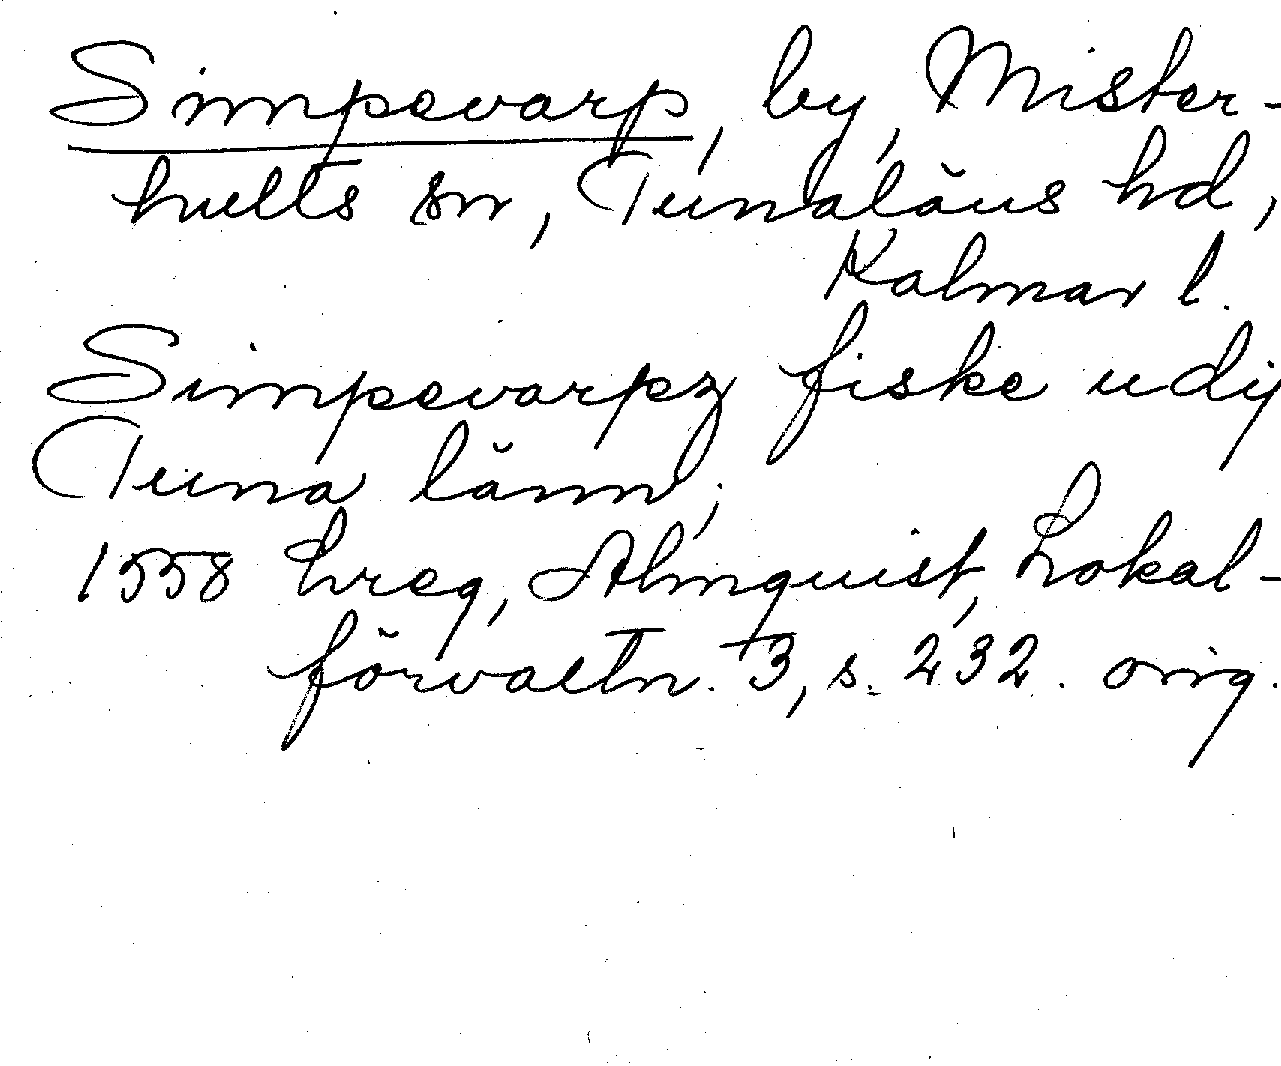 Simpevarp, by, Mister-
hults sn, Tunaläns hd,
Kalmar l.
Simpevarpz fiske udij
Tuna länn;
1558 hreg, Almquist, Lokal-
förvaltn. 3, s. 232. orig.